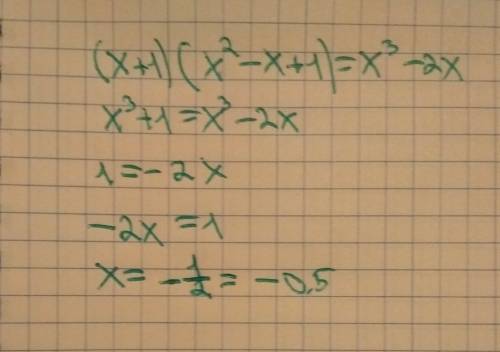 (x+1)(x²-x+1)=x³-2x
x³+1=x³-2x
1=-2x
-2x=1
x=-1/2=-0,5